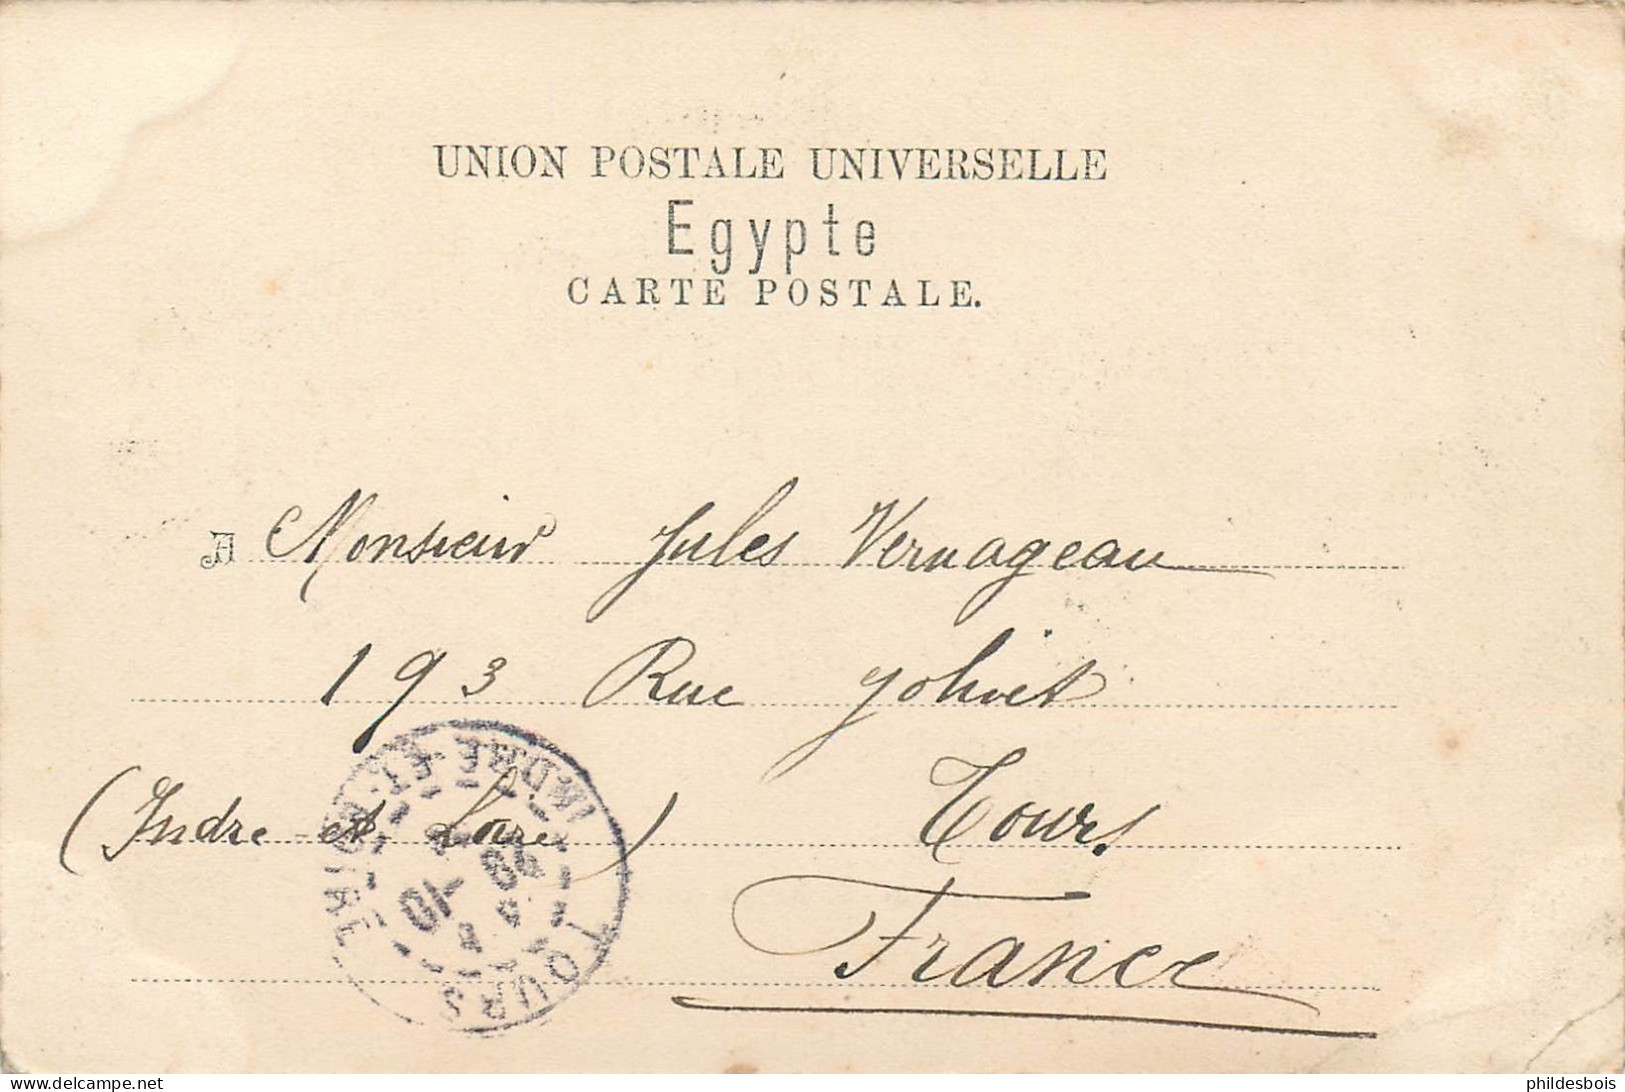 UNION POSTALE UNIVERSELLE
Egypte
CARTE POSTALE.
A Monsieur Jules Vernageau
193 Rue Jolivet
Tours
(Indre et Loire)
France
TOURS
INDRE-ET-LOIRE
delcampe.net
phildesbois